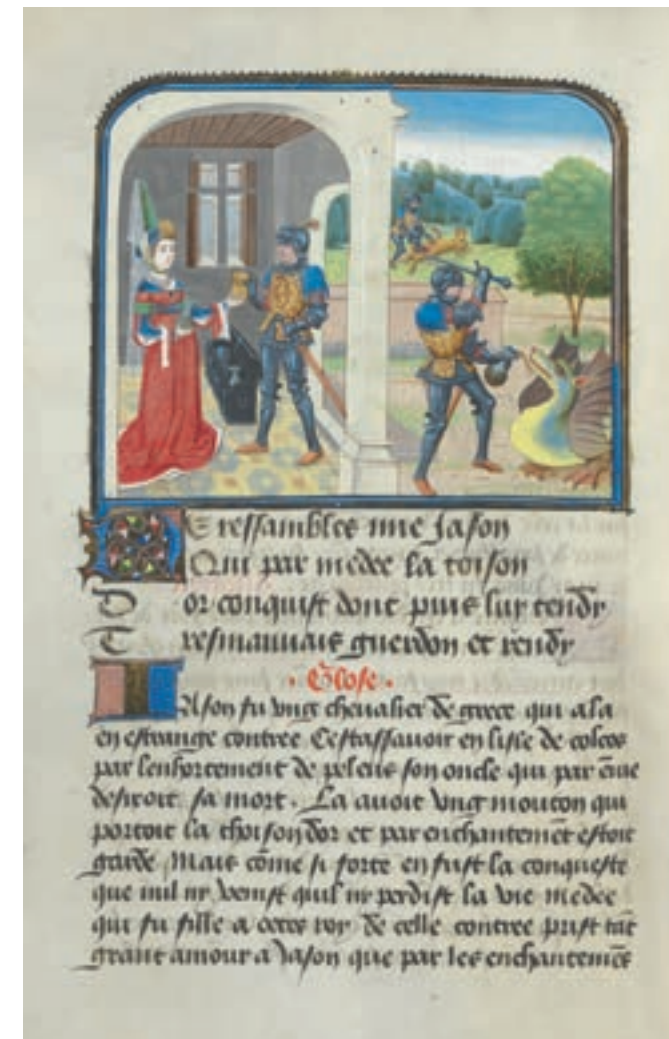 Ne ressambles mie Jason
Qui par medee la toison
Dor conquist dont puis luy rendy
Tresmauuais guerdon et rendy
. Glose .
Jason fu vng cheualier de grece qui ala
en estrange contree Cestassauoir en lisle de colcos
par lenhortement de peleus son oncle qui par enuie
desiroit sa mort . La auoit vng mouton qui
portoit la thoison dor et par enchantemet estoit
garde Mais come si forte en fust la conqueste
que nul ny venist quil ny perdist la vie medee
qui fu fille a roy de celle contree prist tat
grant amour a Jason que par les enchantemes